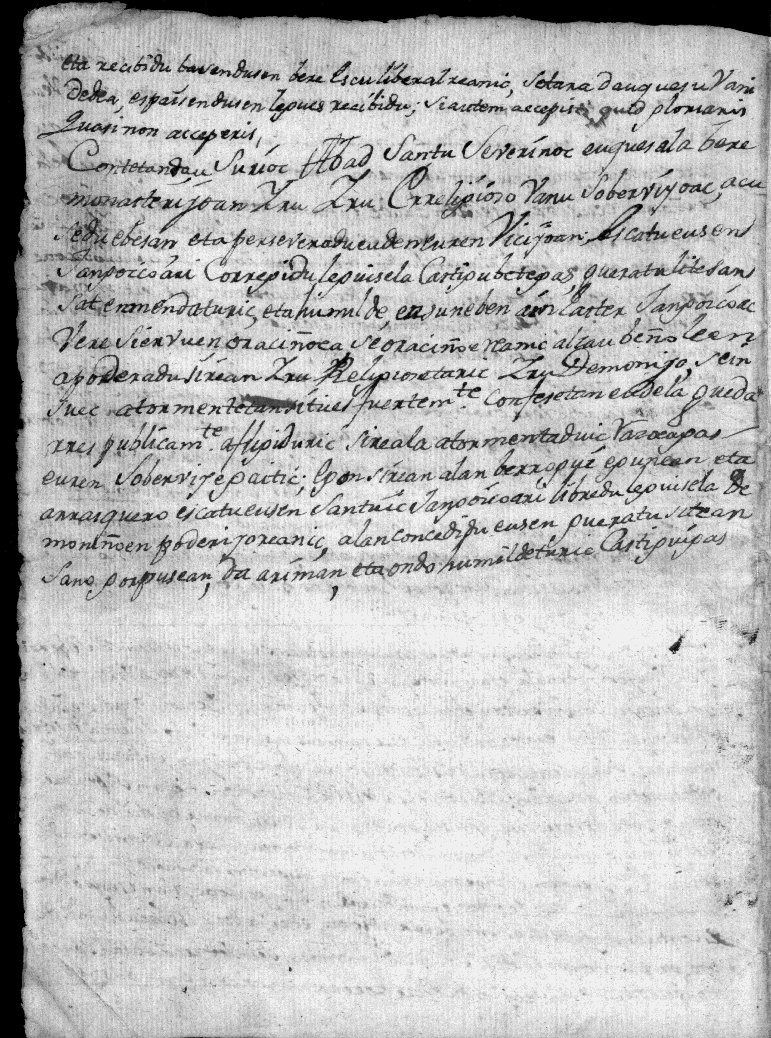 eta recibidu bavendusen bere escu liberalreanic, setara dauquesu Vani
dedea, espaisendusen lepues recibidu; si autem accepisti quid gloriaris
Quasi non acceperis,
Contetandau Surioc Abad Santu Severinoc euquesala bere
monasterijoan Zru Zru, Crreligioso Vanu Sobervijoac, acu
sedu ebesan eta perseveradu euden euren Vicijoan: Escatu eusen
Janpoicoari Correpidu lepuisela Castigubetegas, gueratu litesan
sat enmendaturic, eta humilde ensuneben aren Carter Janpoicoac
Vere Siervuen oracinoea seoracinoereanic alzau beño leen
apoderadu sirean Zru Religiosetaric Zru Demonijo, sein
suec atormentetan situes fuertemte. Confesetan ebdela queda
rres publicamte. afligiduric sireala atormentaduic Vasaapas
euren Sobervijepaitic; Egon sirean alan berroguei egunean eta
arrasquero escatu eusen Santuic Janpoicoari libredu lepuisela De
moniñoen poderijoreanic, alan concedidu eusen gueratu satean
sano gorpusean, da ariman, eta ondo humildeturic Castiguigas